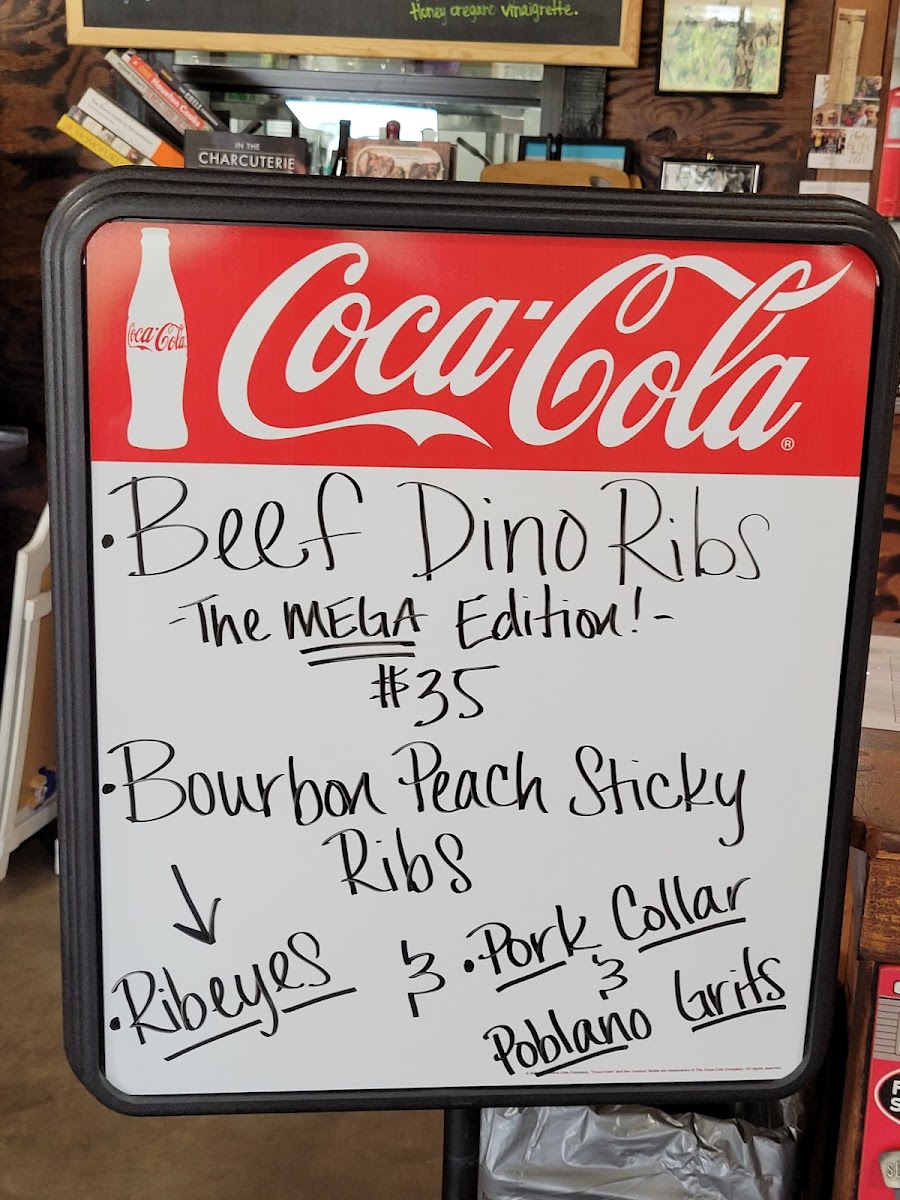 Honey oregano vinaigrette.
IN THE
CHARCUTERIE
Coca-Cola
Coca-Cola®
• Beef Dino Ribs
- The MEGA Edition! -
$35
• Bourbon Peach Sticky
Ribs
• Ribeyes & • Pork Collar
&
Poblano Grits